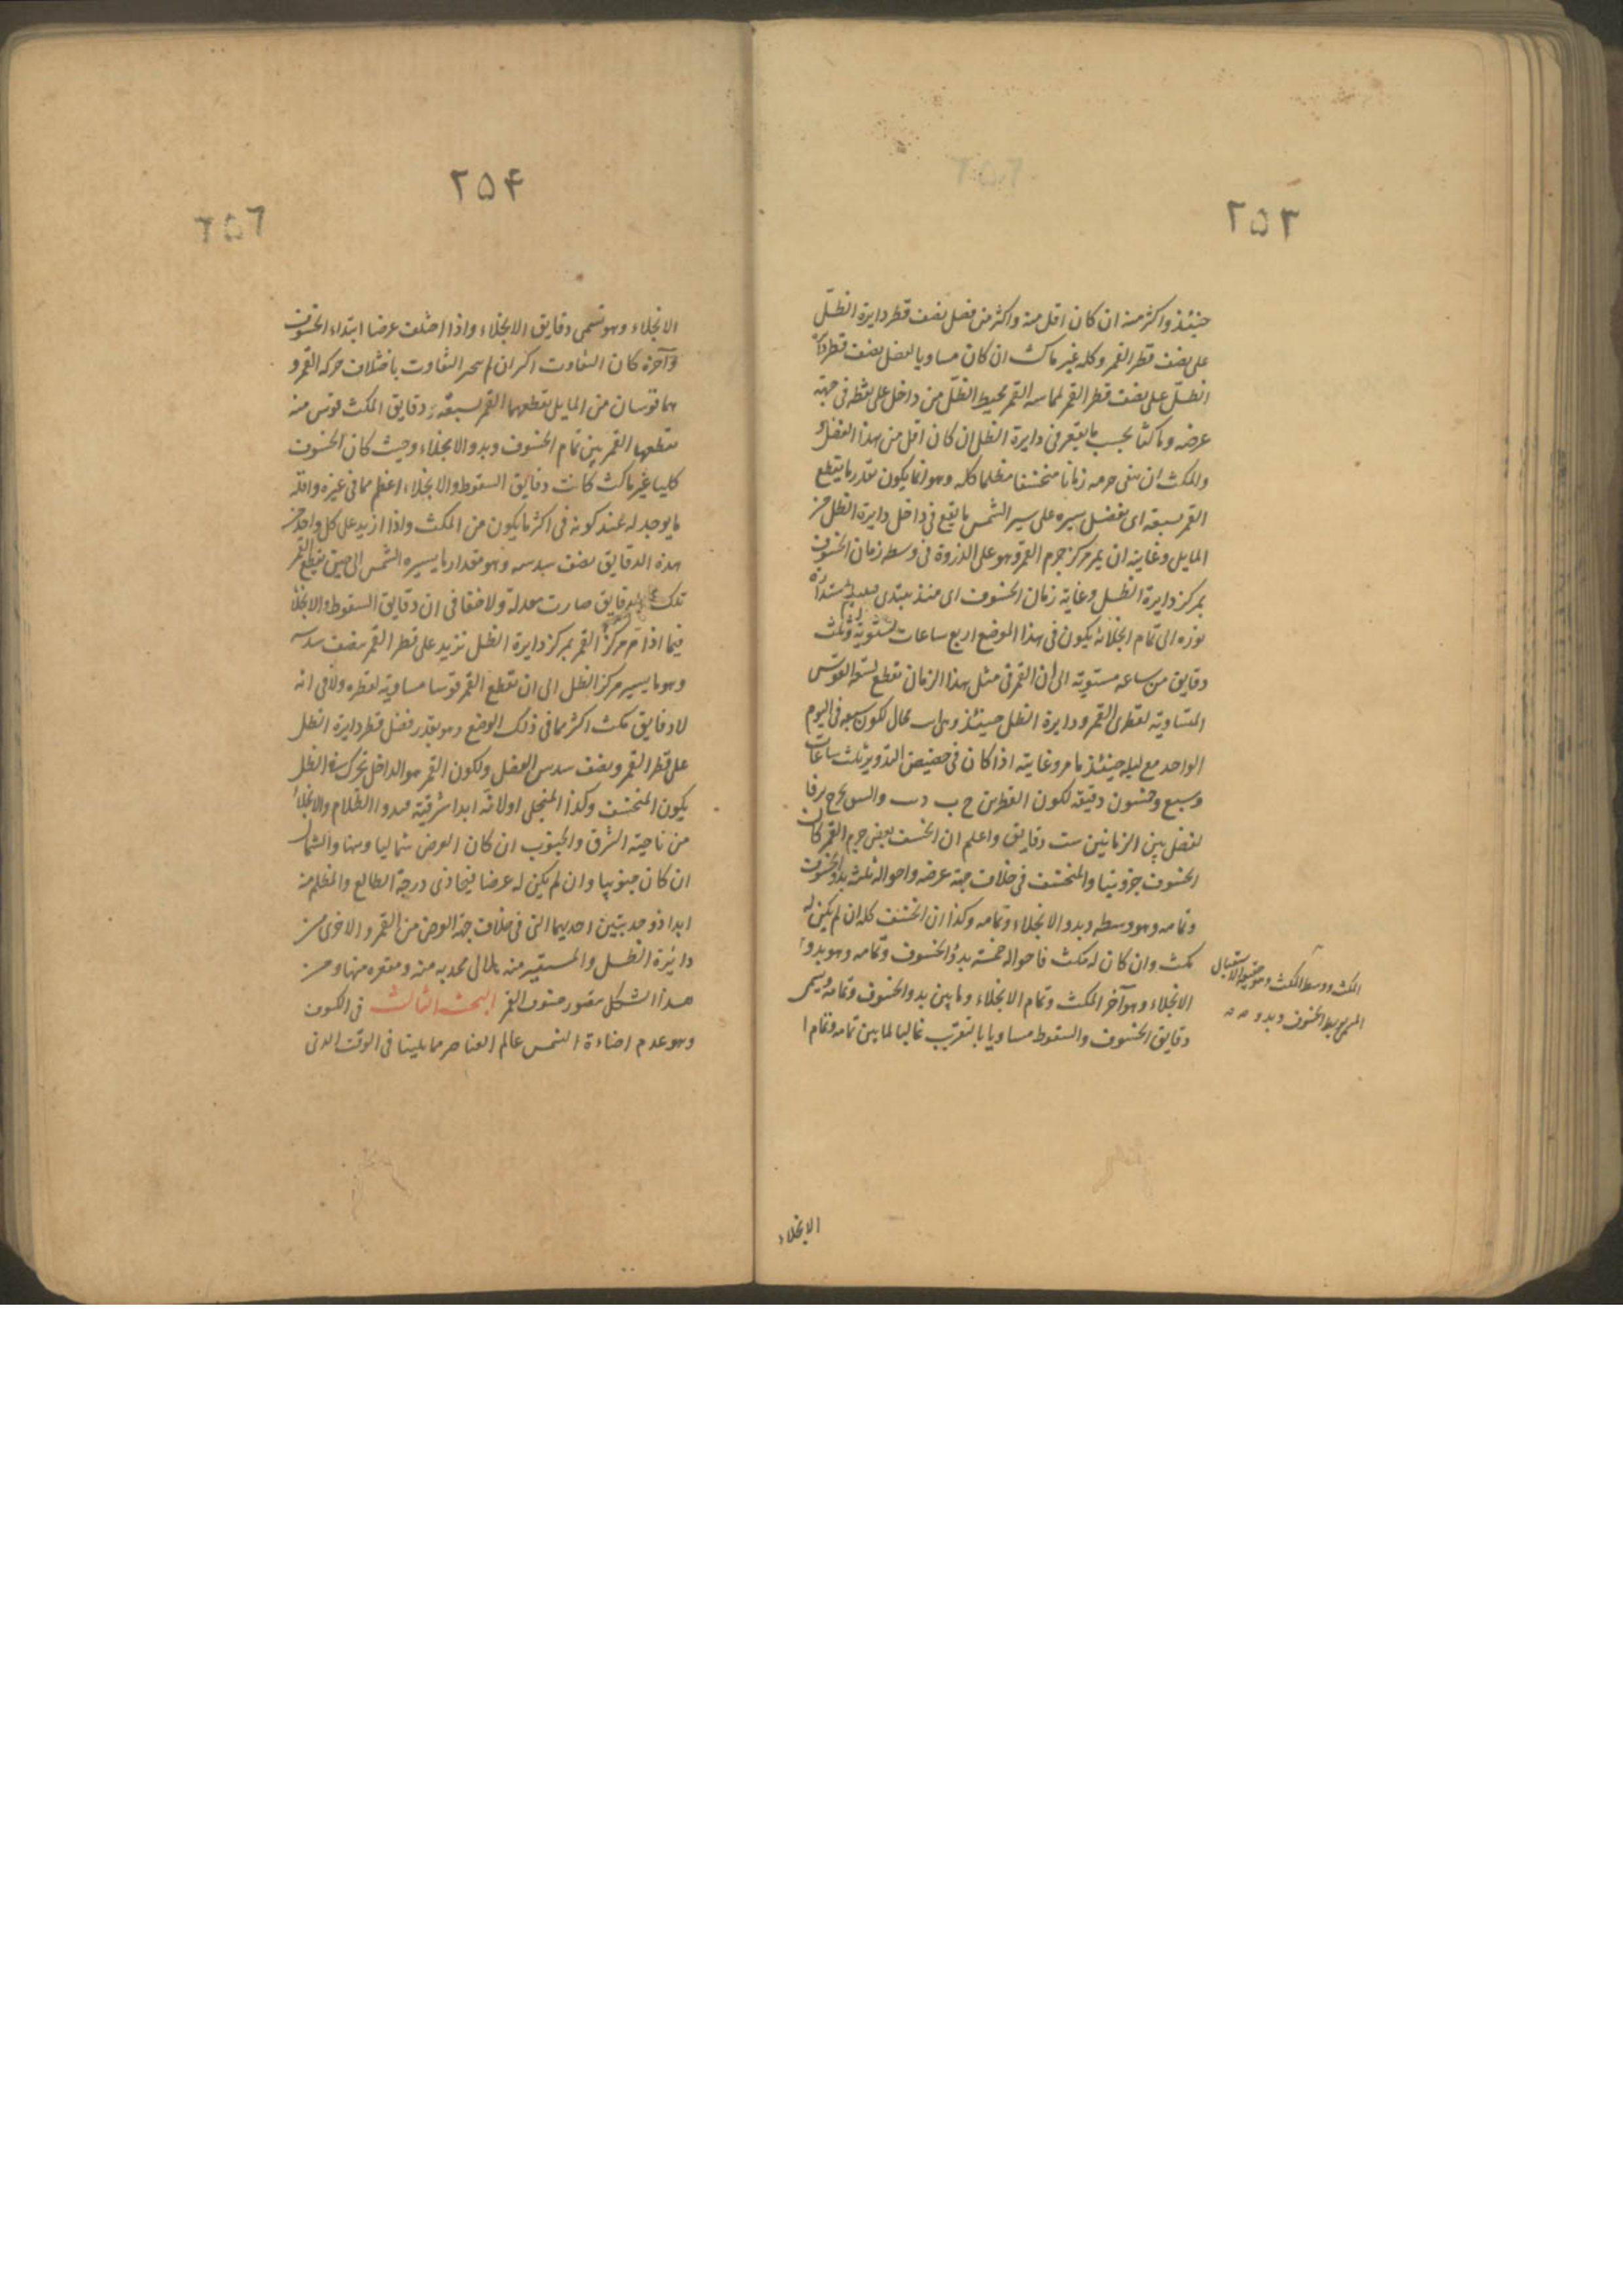 ٢٥٣
حينئذ واكثر منه ان كان اقل منه واكثر من فضل نصف قطر دايرة الظلّ
على نصف قطر القمر وكله غير ماكث ان كان مساويا لفضل نصف قطر دايرة
الظلّ على نصف قطر القمر لمماسه القمر محيط الظلّ من داخل على نقطه فى جهة
عرضه وماكثا بحسب ما يقع فى دايرة الظل ان كان اقل من هذا الفضل
والمكث ان يبقى جرمه زمانا منخسفا مظلما كله وهو انما يكون بقدر ما يقطع
القمر بسبقه اى بفضل سيره على سير الشمس ما يقع فى داخل دايرة الظل من
المايل وغايته ان يمر مركز جرم القمر وهو على الذروة فى وسط زمان الخسوف
بمركز دايرة الظل وغاية زمان الخسوف اى منذ يبتدى
نوره الى تمام انجلائه يكون فى هذا الموضع اربع ساعات مستوية وثلث
دقايق من ساعه مستوية الى ان القمر فى مثل هذا الزمان يقطع بسبقه القوس
المساوية لقطرى القمر ودايرة الظل حينئذ لكون سبقه فى اليوم
الواحد مع ليله حينئذ ما مر وغايته اذا كان فى حضيض التدوير ثلث ساعات
وسبع وخمسون دقيقه لكون القطرين
لفضل بين الزمانين ست دقايق واعلم ان الخسف بعض جرم القمر كان
الخسوف جزويتا والمنخسف فى خلاف جهة عرضه واحواله ثلثه بدو الخسوف
وتمامه وهو وسطه وبدو الانجلاء وتمامه وكذا ان انخسف كله ان لم يكن له
مكث وان كان له مكث فاحواله خمسة بدؤ الخسوف وتمامه وهو بدو
الانجلاء وهو آخر المكث وتمام الانجلاء وما بين بدو الخسوف وتمامه يسمى
دقايق الخسوف والسقوط مساويا بالتقريب غالبا لما بين تمامه وتمام ا
المكث ووسط المكث وهو الاستقبال
المسمى بوسط الخسوف وبدو
الانجلاء
٢٥۴
٢٥٦
الانجلاء وهو تسمى دقايق الانجلاء واذا اختلف عرضا ابتداء الخسوف
وآخره كان التفاوت اكثر ان لم التفاوت باختلاف حركة القمر و
هما قوسان من المايل يقطعهما القمر بسبقه ودقايق المكث قوس منه
يقطعها القمر بين تمام الخسوف وبدو الانجلاء وحيث كان الخسوف
كليا غير ماكث كانت دقايق السقوط والانجلاء اعظم مما فى غيره واقله
ما يوجد له عند كونه فى اكثر ما يكون من المكث واذا ازيد على كل واحد من
هذه الدقايق نصف سدسه وهو مقدار ما يسيره الشمس الى حين يقطع القمر
تلك الدقايق صارت معدلة ولا خفا فى ان دقايق السقوط والانجلا
فيما اذا مر مركز القمر بمركز دايرة الظل تزيد على قطر القمر بنصف سدسه
وهو ما يسير مركز الظل الى ان يقطع القمر قوسا مساوية لقطره ولا فى انه
لا دقايق مكث اكثر مما فى ذلك الوضع وهو بقدر فضل قطر دايرة الظل
على قطر القمر ونصف سدس الفضل ولكون القمر هو الداخل بحركته الظل
يكون المنخسف وكذا المنجلى اولا منه ابدا شرقية فبدوا الظلام والانجلاء
من ناحية الشرق والجنوب ان كان العرض شماليا ومنها والشمال
ان كان جنوبيا وان لم يكن له عرض فيحاذى درجة الطالع والمظلم منه
ابدا ذو حدبتين احديهما التى فى خلاف جهة العرض من القمر والاخرى من
دائرة الظل والمستنير منه هلالى محدبه منه ومقعره منها ومن
هذا الشكل يتصور خسوف القمر البحث الثالث فى الكسوف
وهو عدم اضاءة الشمس عالم العناصر مما يلينا فى الوقت الذى